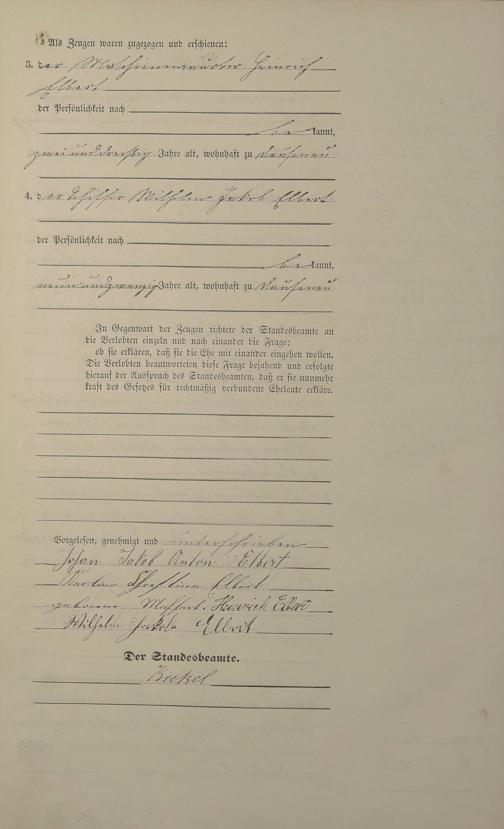 Als Zeugen waren zugezogen und erschienen:
3. der Maschinenwärter Heinrich
Elbert
der Persönlichkeit nach
be kannt,
zweiunddreißig Jahre alt, wohnhaft zu Dausenau.
4. der Schiffer Wilhelm Jakob Elbert
der Persönlichkeit nach
be kannt,
neunundzwanzig Jahre alt, wohnhaft zu Dausenau
In Gegenwart der Zeugen richtete der Standesbeamte an
die Verlobten einzeln und nach einander die Frage:
ob sie erklären, daß sie die Ehe mit einander eingehen wollen.
Die Verlobten beantworteten diese Frage bejahend und erfolgte
hierauf der Ausspruch des Standesbeamten, daß er sie nunmehr
kraft des Gesetzes für rechtmäßig verbundene Eheleute erkläre.
Vorgelesen, genehmigt und unterschrieben
Johan Jakob Anton Elbert
Christina Elbert
geborene Heinrich Elbert
Wilhelm Jakob Elbert
Der Standesbeamte.